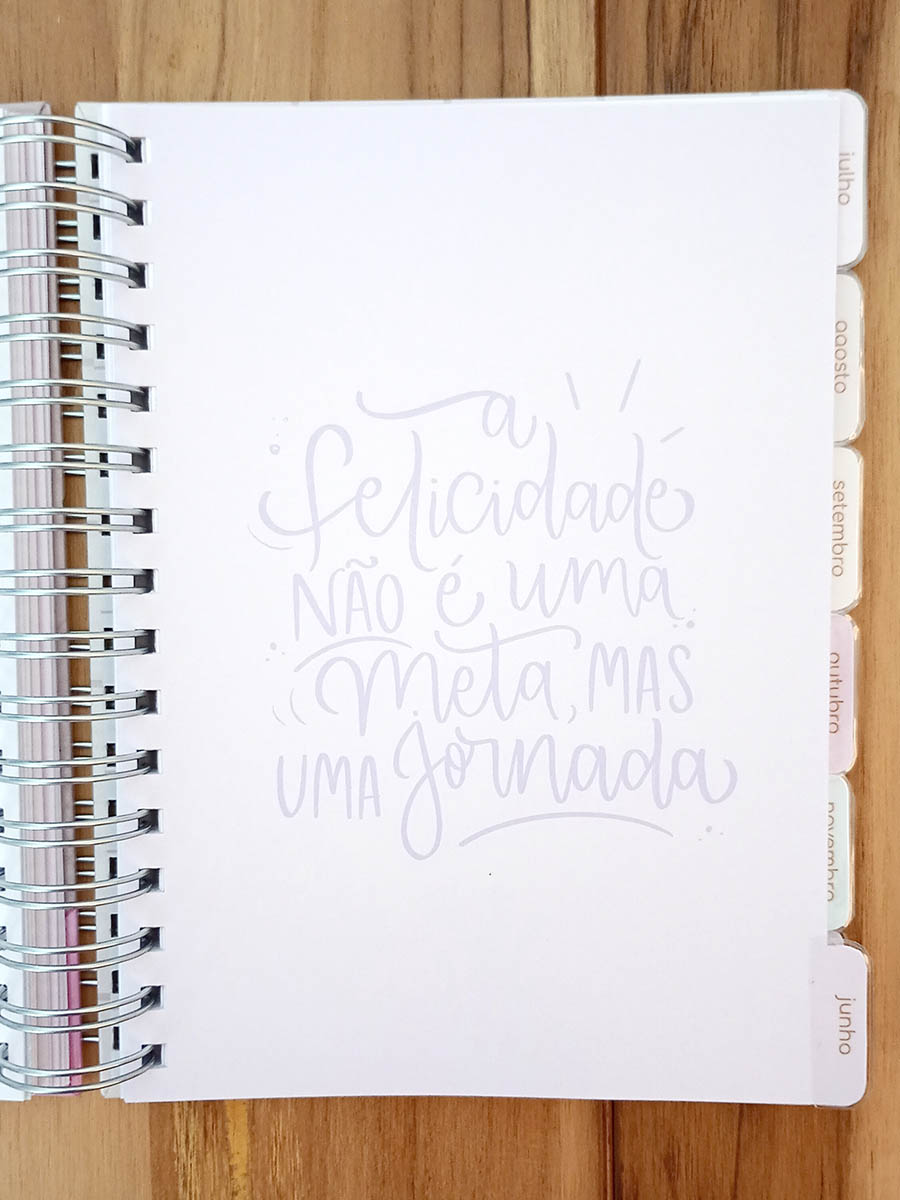 a
felicidade
NÃO é uma
meta, MAS
UMA jornada
julho
agosto
setembro
outubro
novembro
junho